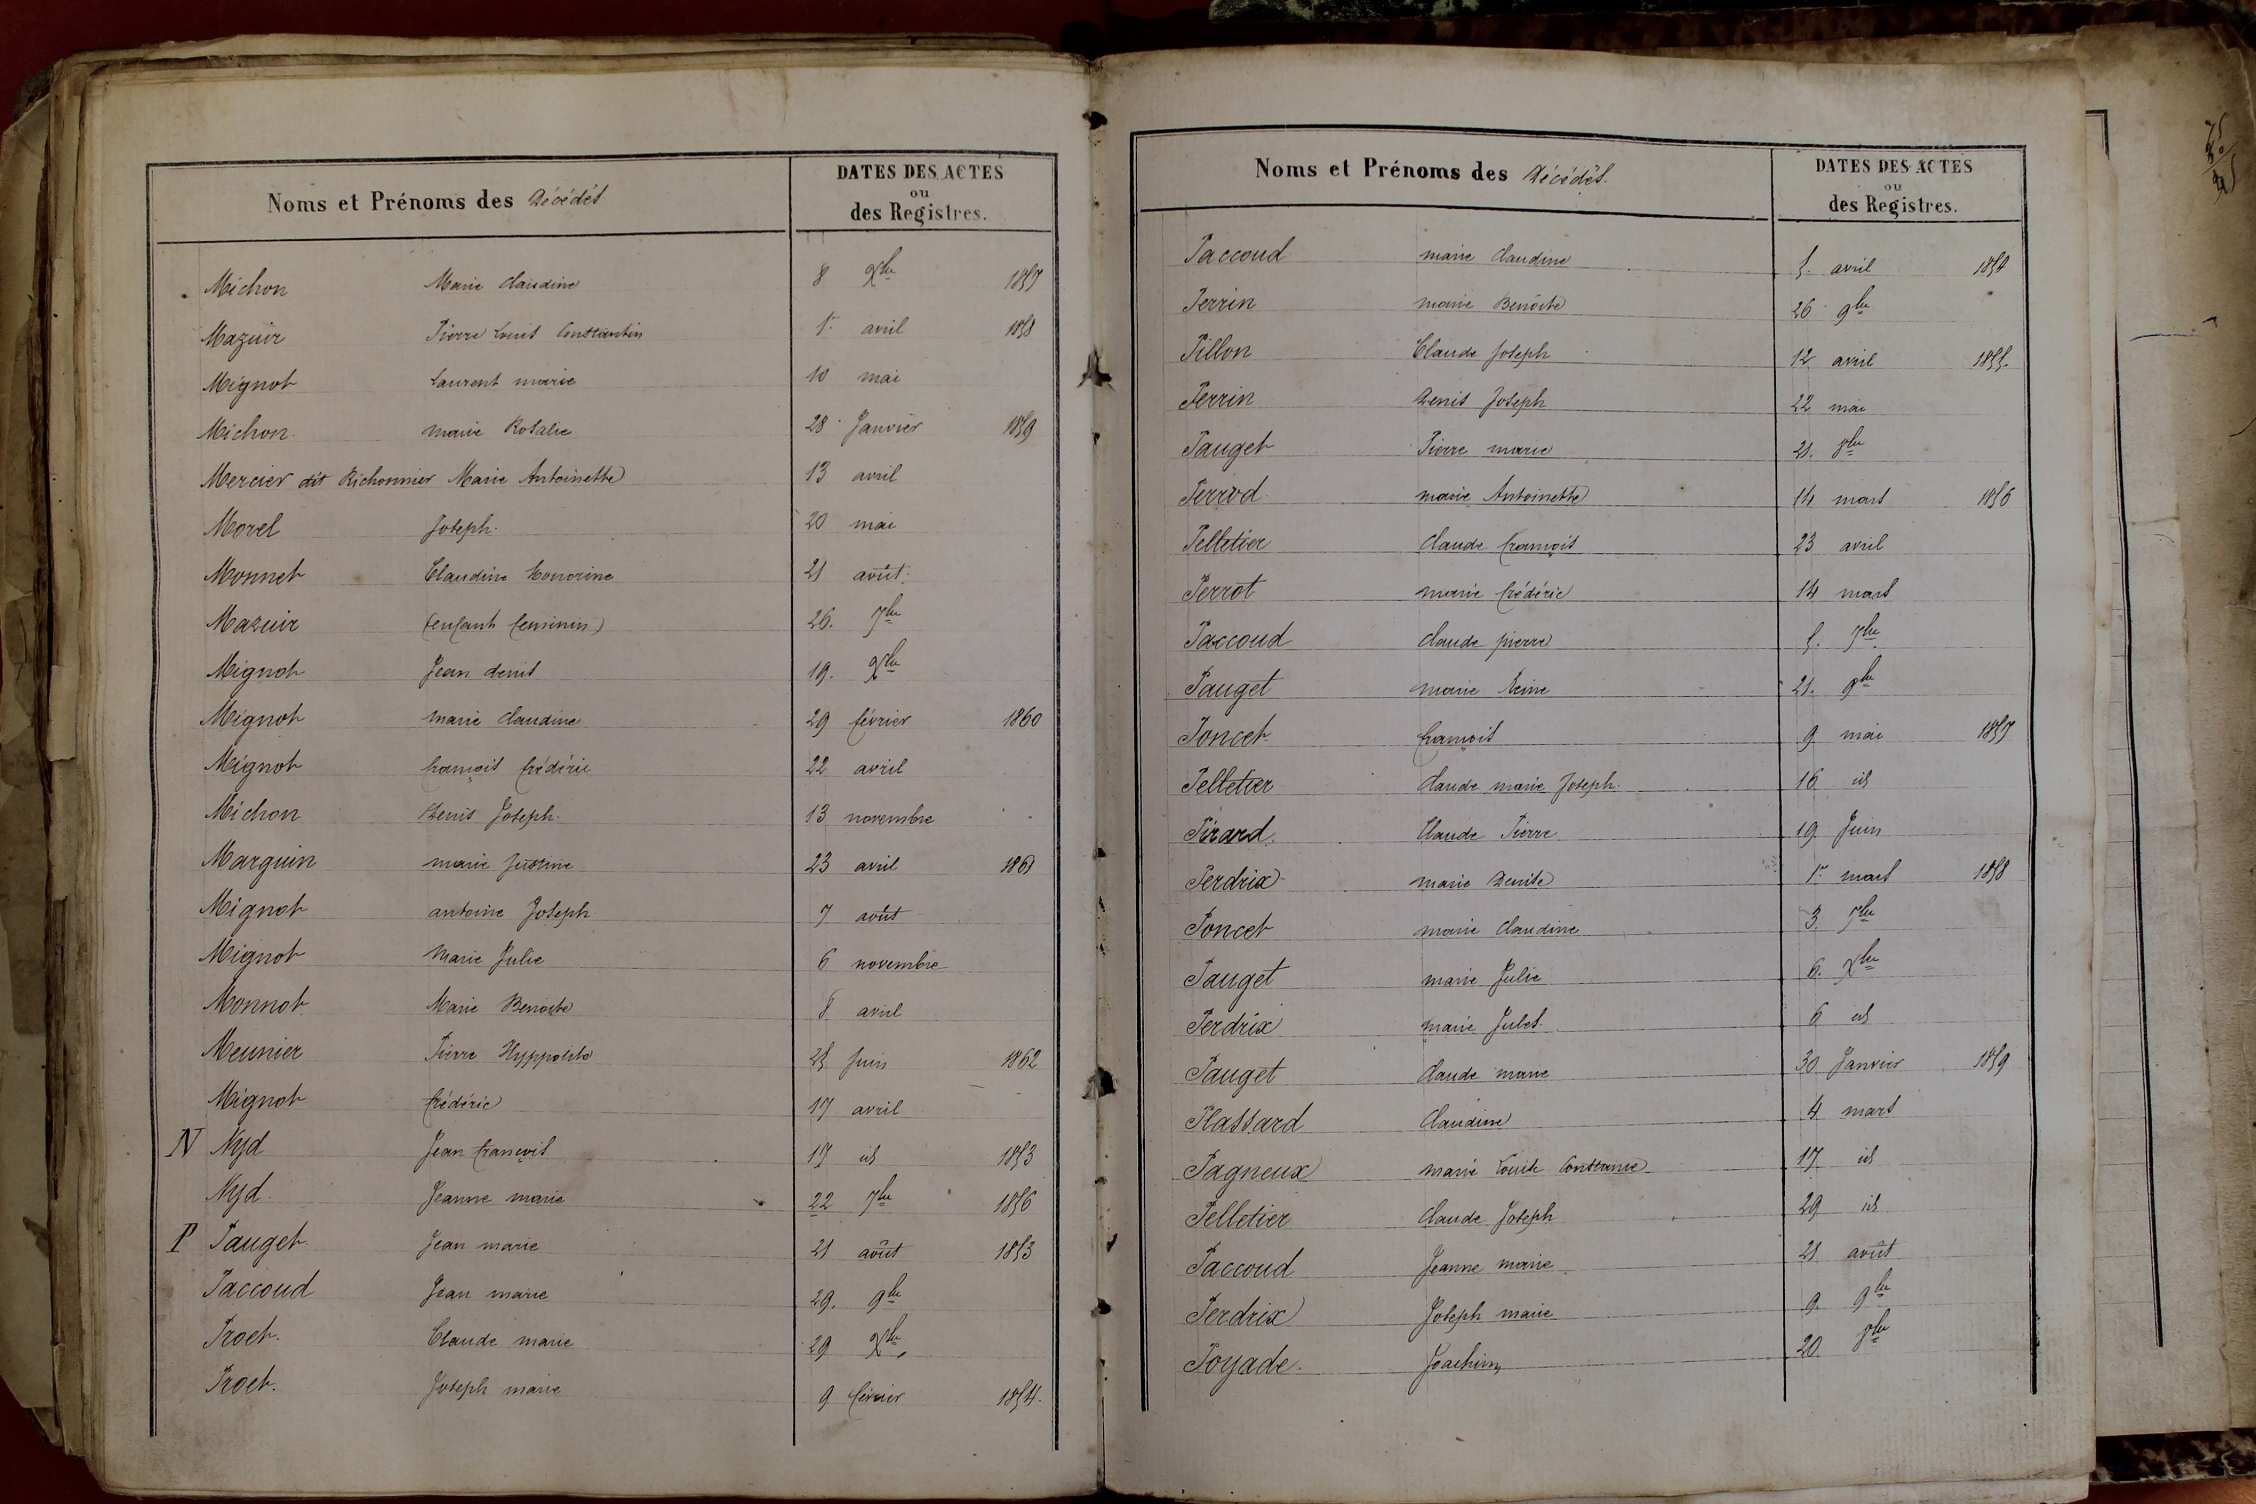 Noms et Prénoms des Décédés
DATES DES ACTES
ou
des Registres.
Michon Marie Claudine 8 Xbre 1857
Mazuir Pierre Louis Constantin 1er avril 1858
Mignot Laurent marie 10 mai
Michon marie Rosalie 28 Janvier 1859
Mercier dit Richonnier Marie Antoinette 13 avril
Morel Joseph. 20 mai
Monnet Claudine honorine 21 août.
Mazuir (enfant féminin) 26. 7bre
Mignot Jean denis 19. Xbre
Mignot marie claudine 29 février 1860
Mignot françois frédéric 22 avril
Michon Denis Joseph. 13 novembre
Marguin marie Justine 23 avril 1861
Mignot antoine Joseph 7 août
Mignot Marie Julie 6 novembre
Monnot Marie Benoite 8 avril
Meunier Pierre Hyppolite 25 Juin 1862
Mignot frédéric 17 avril
N Nyd Jean françois 17 id 1853
Nyd. Jeanne marie 22 7bre 1856
P Pauget Jean marie 21 août 1853
Paccoud Jean marie 29. 9bre
Proet. Claude marie 29 Xbre
Proet. Joseph marie 9 février 1854.
Noms et Prénoms des Décédés.
DATES DES ACTES
ou
des Registres.
Paccoud marie claudine 5. avril 1854
Perrin marie Benoite 26 9bre
Pillon Claude Joseph 12 avril 1855.
Perrin Denis Joseph 22 mai
Pauget Pierre marie 21. 8bre
Perrod marie Antoinette 14 mars 1856
Pelletier claude françois 23 avril
Perrot marie frédéric 14 mars
Paccoud claude pierre 5. 7bre
Pauget marie Reine 21. 9bre
Poncet françois 9 mai 1857
Pelletier claude marie Joseph. 16 id
Pirard. Claude Pierre 19 Juin
Perdrix marie Denise 1er mars 1858
Poncet marie claudine 3. 7bre
Pauget marie Julie 6. Xbre
Perdrix marie Jules. 6 id
Pauget claude marie 30 Janvier 1859
Plassard claudine 4 mars
Pagneux marie Louise Constance 17 id
Pelletier claude Joseph 29 id
Paccoud Jeanne marie 21 août
Perdrix Joseph marie 9. 9bre
Poyade. Joachim 20 8bre